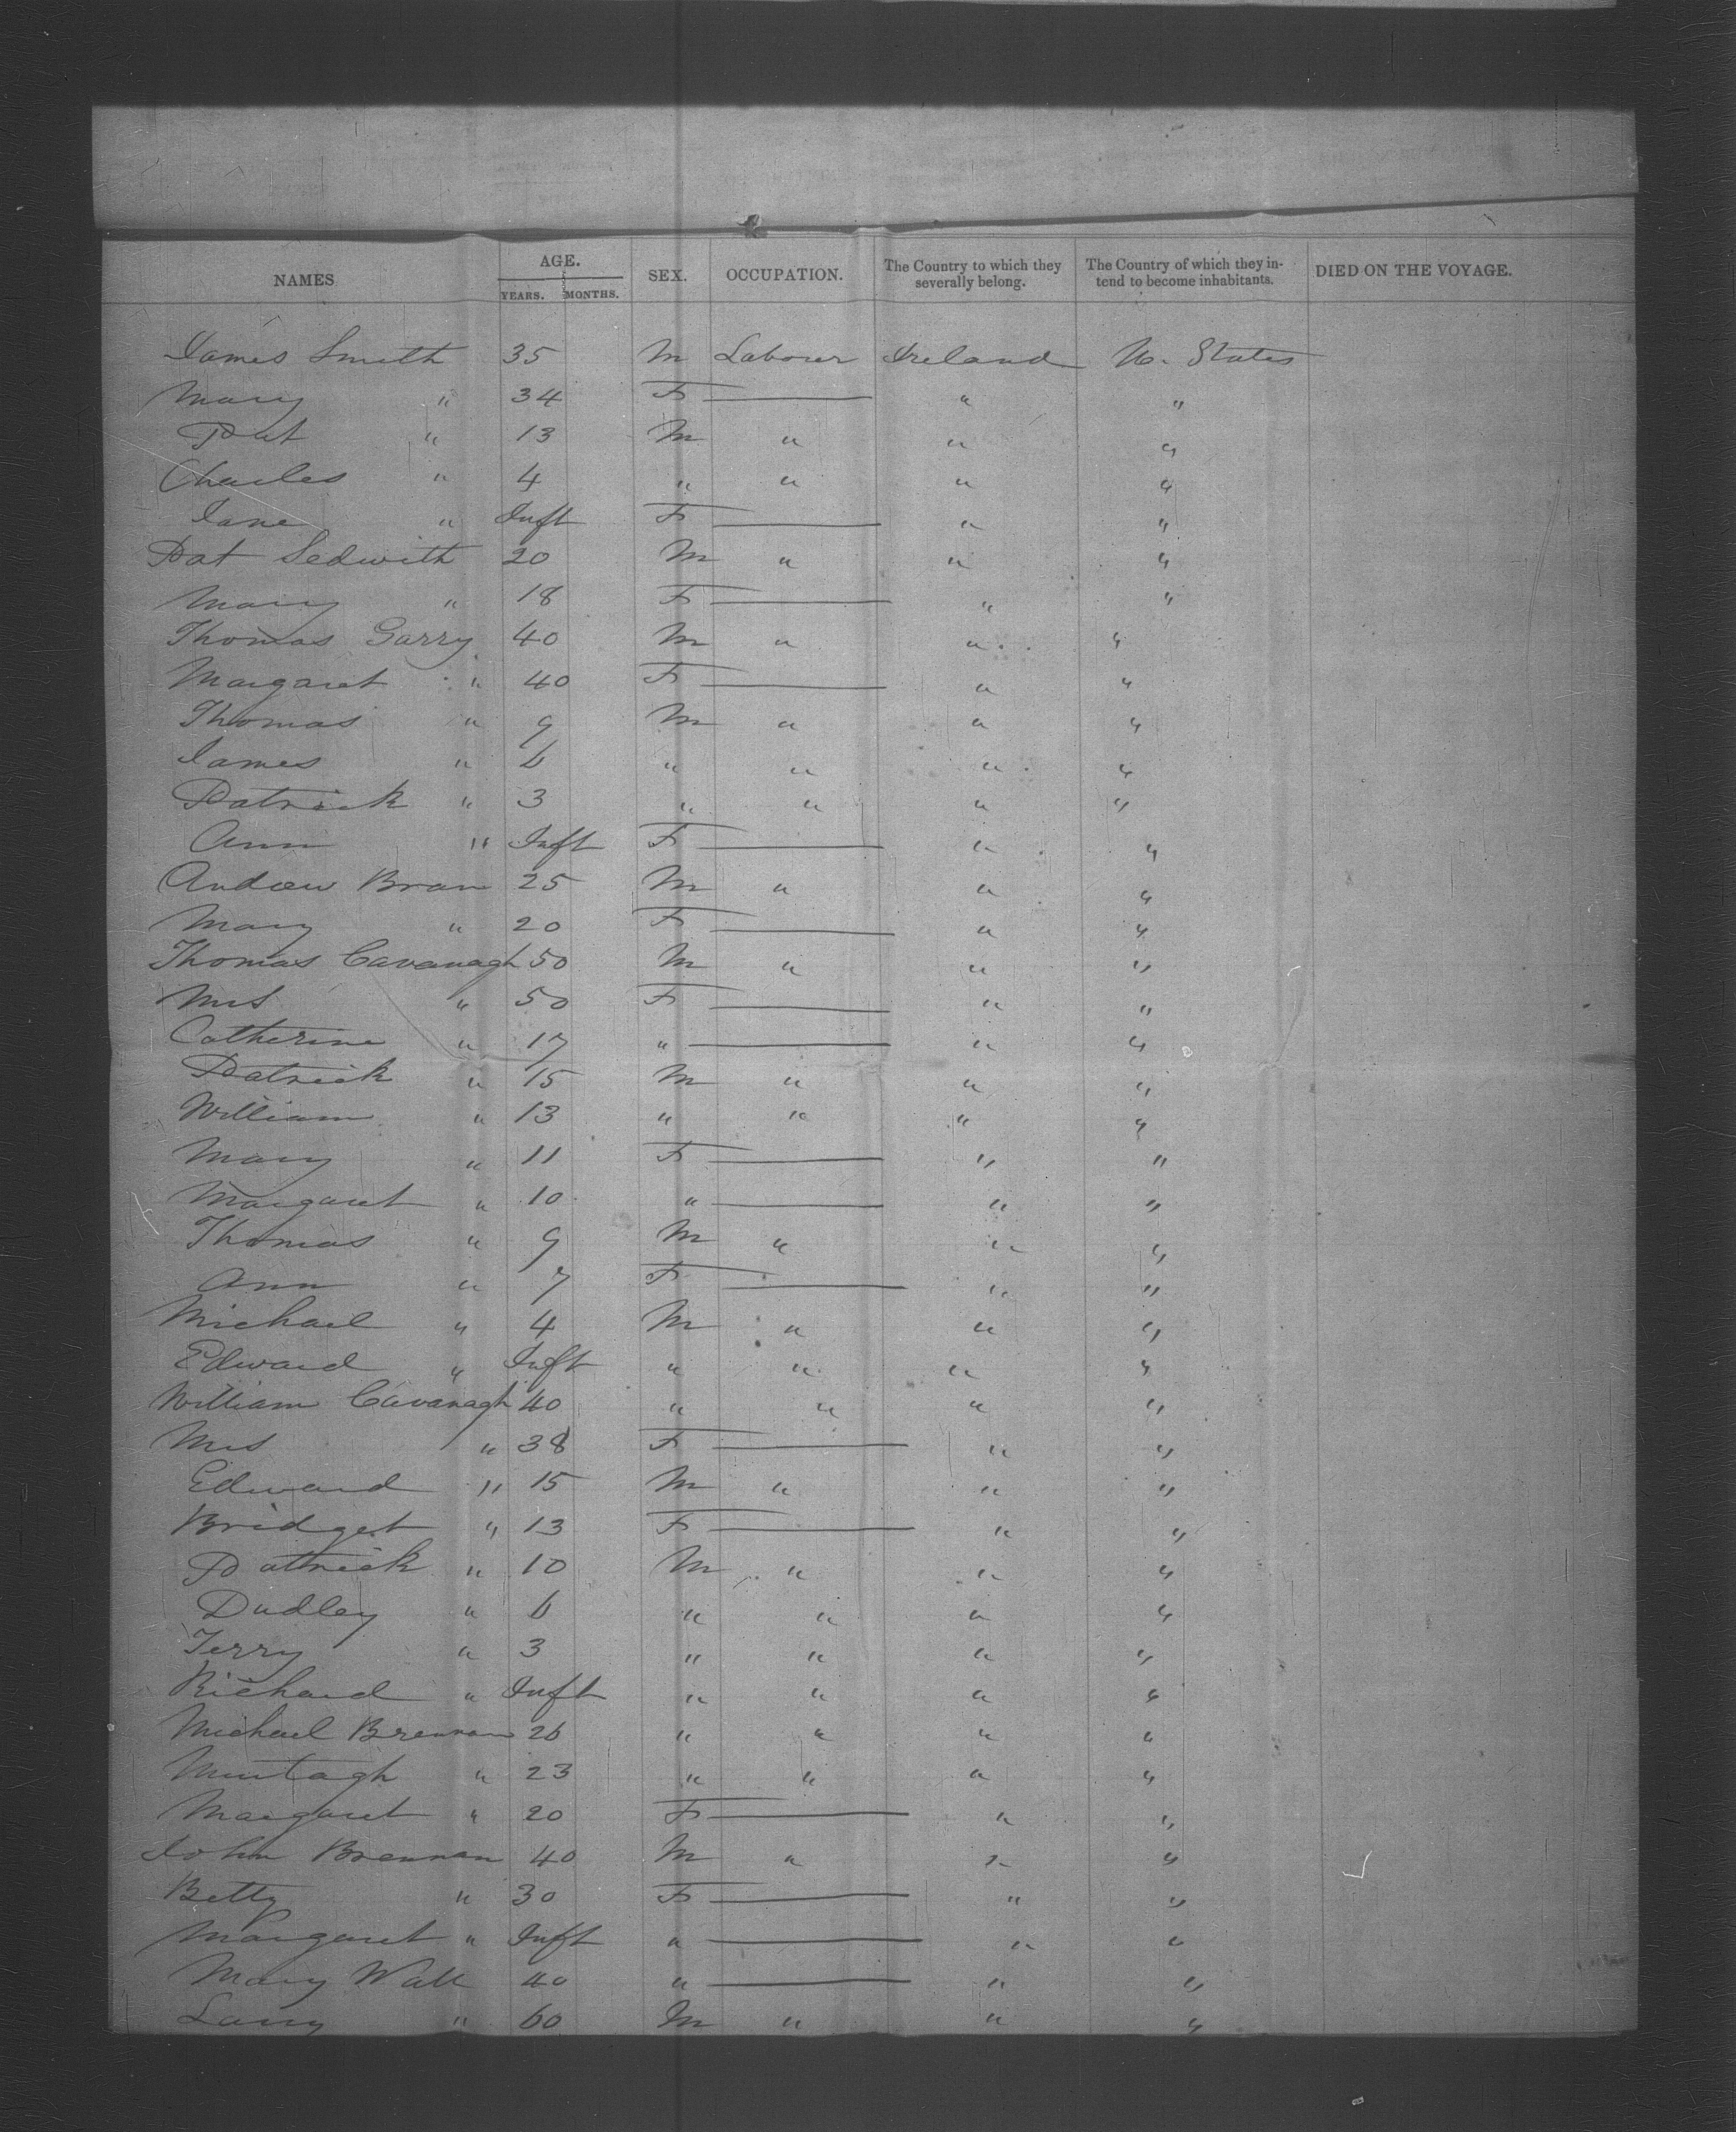 NAMES AGE. YEARS. MONTHS. SEX. OCCUPATION. The Country to which they severally belong. The Country of which they intend to become inhabitants. DIED ON THE VOYAGE.
James Smith 35 M Labourer Ireland U. States
Mary " 34 F — " "
Pat " 13 M " " "
Charles " 4 " " " "
Jane " Inft F — " "
Pat Sedwith 20 M " " "
Mary " 18 F — " "
Thomas Garry 40 M " " "
Margaret " 40 F — " "
Thomas " 9 M " " "
James " 6 " " " "
Patrick " 3 " " " "
Ann " Inft F — " "
Andrew Bran 25 M " " "
Mary " 20 F — " "
Thomas Cavanagh 50 M " " "
Mrs " 50 F — " "
Catherine " 17 " — " "
Patrick " 15 M " " "
William " 13 " " " "
Mary " 11 F — " "
Margaret " 10 " — " "
Thomas " 9 M " " "
Ann " 7 F — " "
Michael " 4 M " " "
Edward " Inft " " " "
William Cavanagh 40 " " " "
Mrs " 38 F — " "
Edward " 15 M " " "
Bridget " 13 F — " "
Patrick " 10 M " " "
Dudley " 6 " " " "
Terry " 3 " " " "
Richard " Inft " " " "
Michael Brennan 26 " " " "
Murtagh " 23 " " " "
Margaret " 20 F — " "
John Brennan 40 M " " "
Betty " 30 F — " "
Margaret " Inft " — " "
Mary Wall 40 " — " "
Larry " 60 M " " "